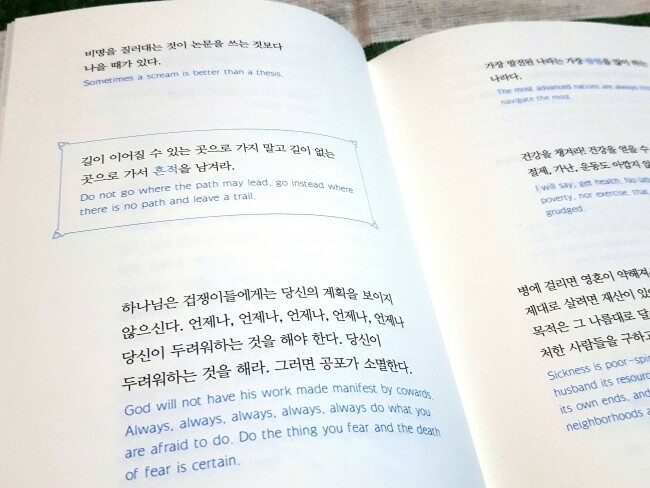 비명을 질러대는 것이 논문을 쓰는 것보다
나을 때가 있다.
Sometimes a scream is better than a thesis.
길이 이어질 수 있는 곳으로 가지 말고 길이 없는
곳으로 가서 흔적을 남겨라.
Do not go where the path may lead, go instead where
there is no path and leave a trail.
하나님은 겁쟁이들에게는 당신의 계획을 보이지
않으신다. 언제나, 언제나, 언제나, 언제나, 언제나
당신이 두려워하는 것을 해야 한다. 당신이
두려워하는 것을 해라. 그러면 공포가 소멸한다.
God will not have his work made manifest by cowards
Always, always, always, always, always do what you
are afraid to do. Do the thing you fear and the death
of fear is certain.
가장 발전된 나라는 가장 항해를 많이 하는
나라다.
The most advanced nations are always
navigate the most
건강을 챙겨라! 건강을 얻을 수
절제, 가난, 운동도 아깝지 않
I will say, get health. No
poverty, nor exercise, that
grudged.
병에 걸리면 영혼이 약해져
제대로 살려면 재산이 있어
목적은 그 나름대로
처한 사람들을 구하고
Sickness is
husband its
its own ends, and
neighborhoods